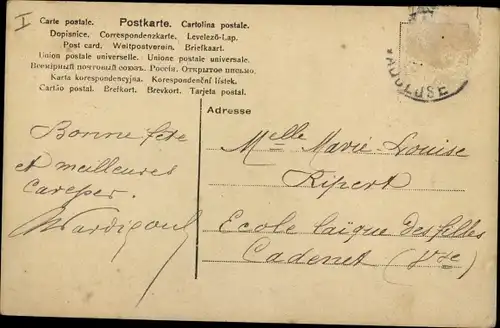 I
Carte postale. Postkarte. Cartolina postale.
Dopisnice. Correspondenzkarte. Levelező-Lap.
Post card. Weltpostverein. Briefkaart.
Union postale universelle. Unione postale universale.
Всемірный почтовый союзъ. Россія. Открытое письмо.
Karta korespondencyjna. Korespondenční lístek.
Cartão postal. Brefkort. Brevkort. Tarjeta postal.
VAUCLUSE
Adresse
Bonne fête
et meilleures
caresses.
Melle Marie Louise
Ripert
Ecole laïque des filles
Cadenet (Vse)